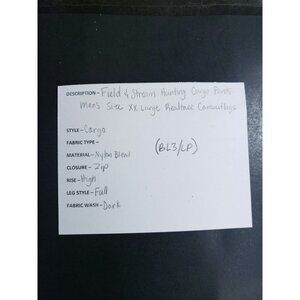 DESCRIPTION - Field & Stream Hunting Cargo Pants
Mens Size XX Large Realtree Camouflage
STYLE - Cargo
FABRIC TYPE -
MATERIAL - Nylon Blend (BL3/LP)
CLOSURE - Zip
RISE - High
LEG STYLE - Full
FABRIC WASH - Dark